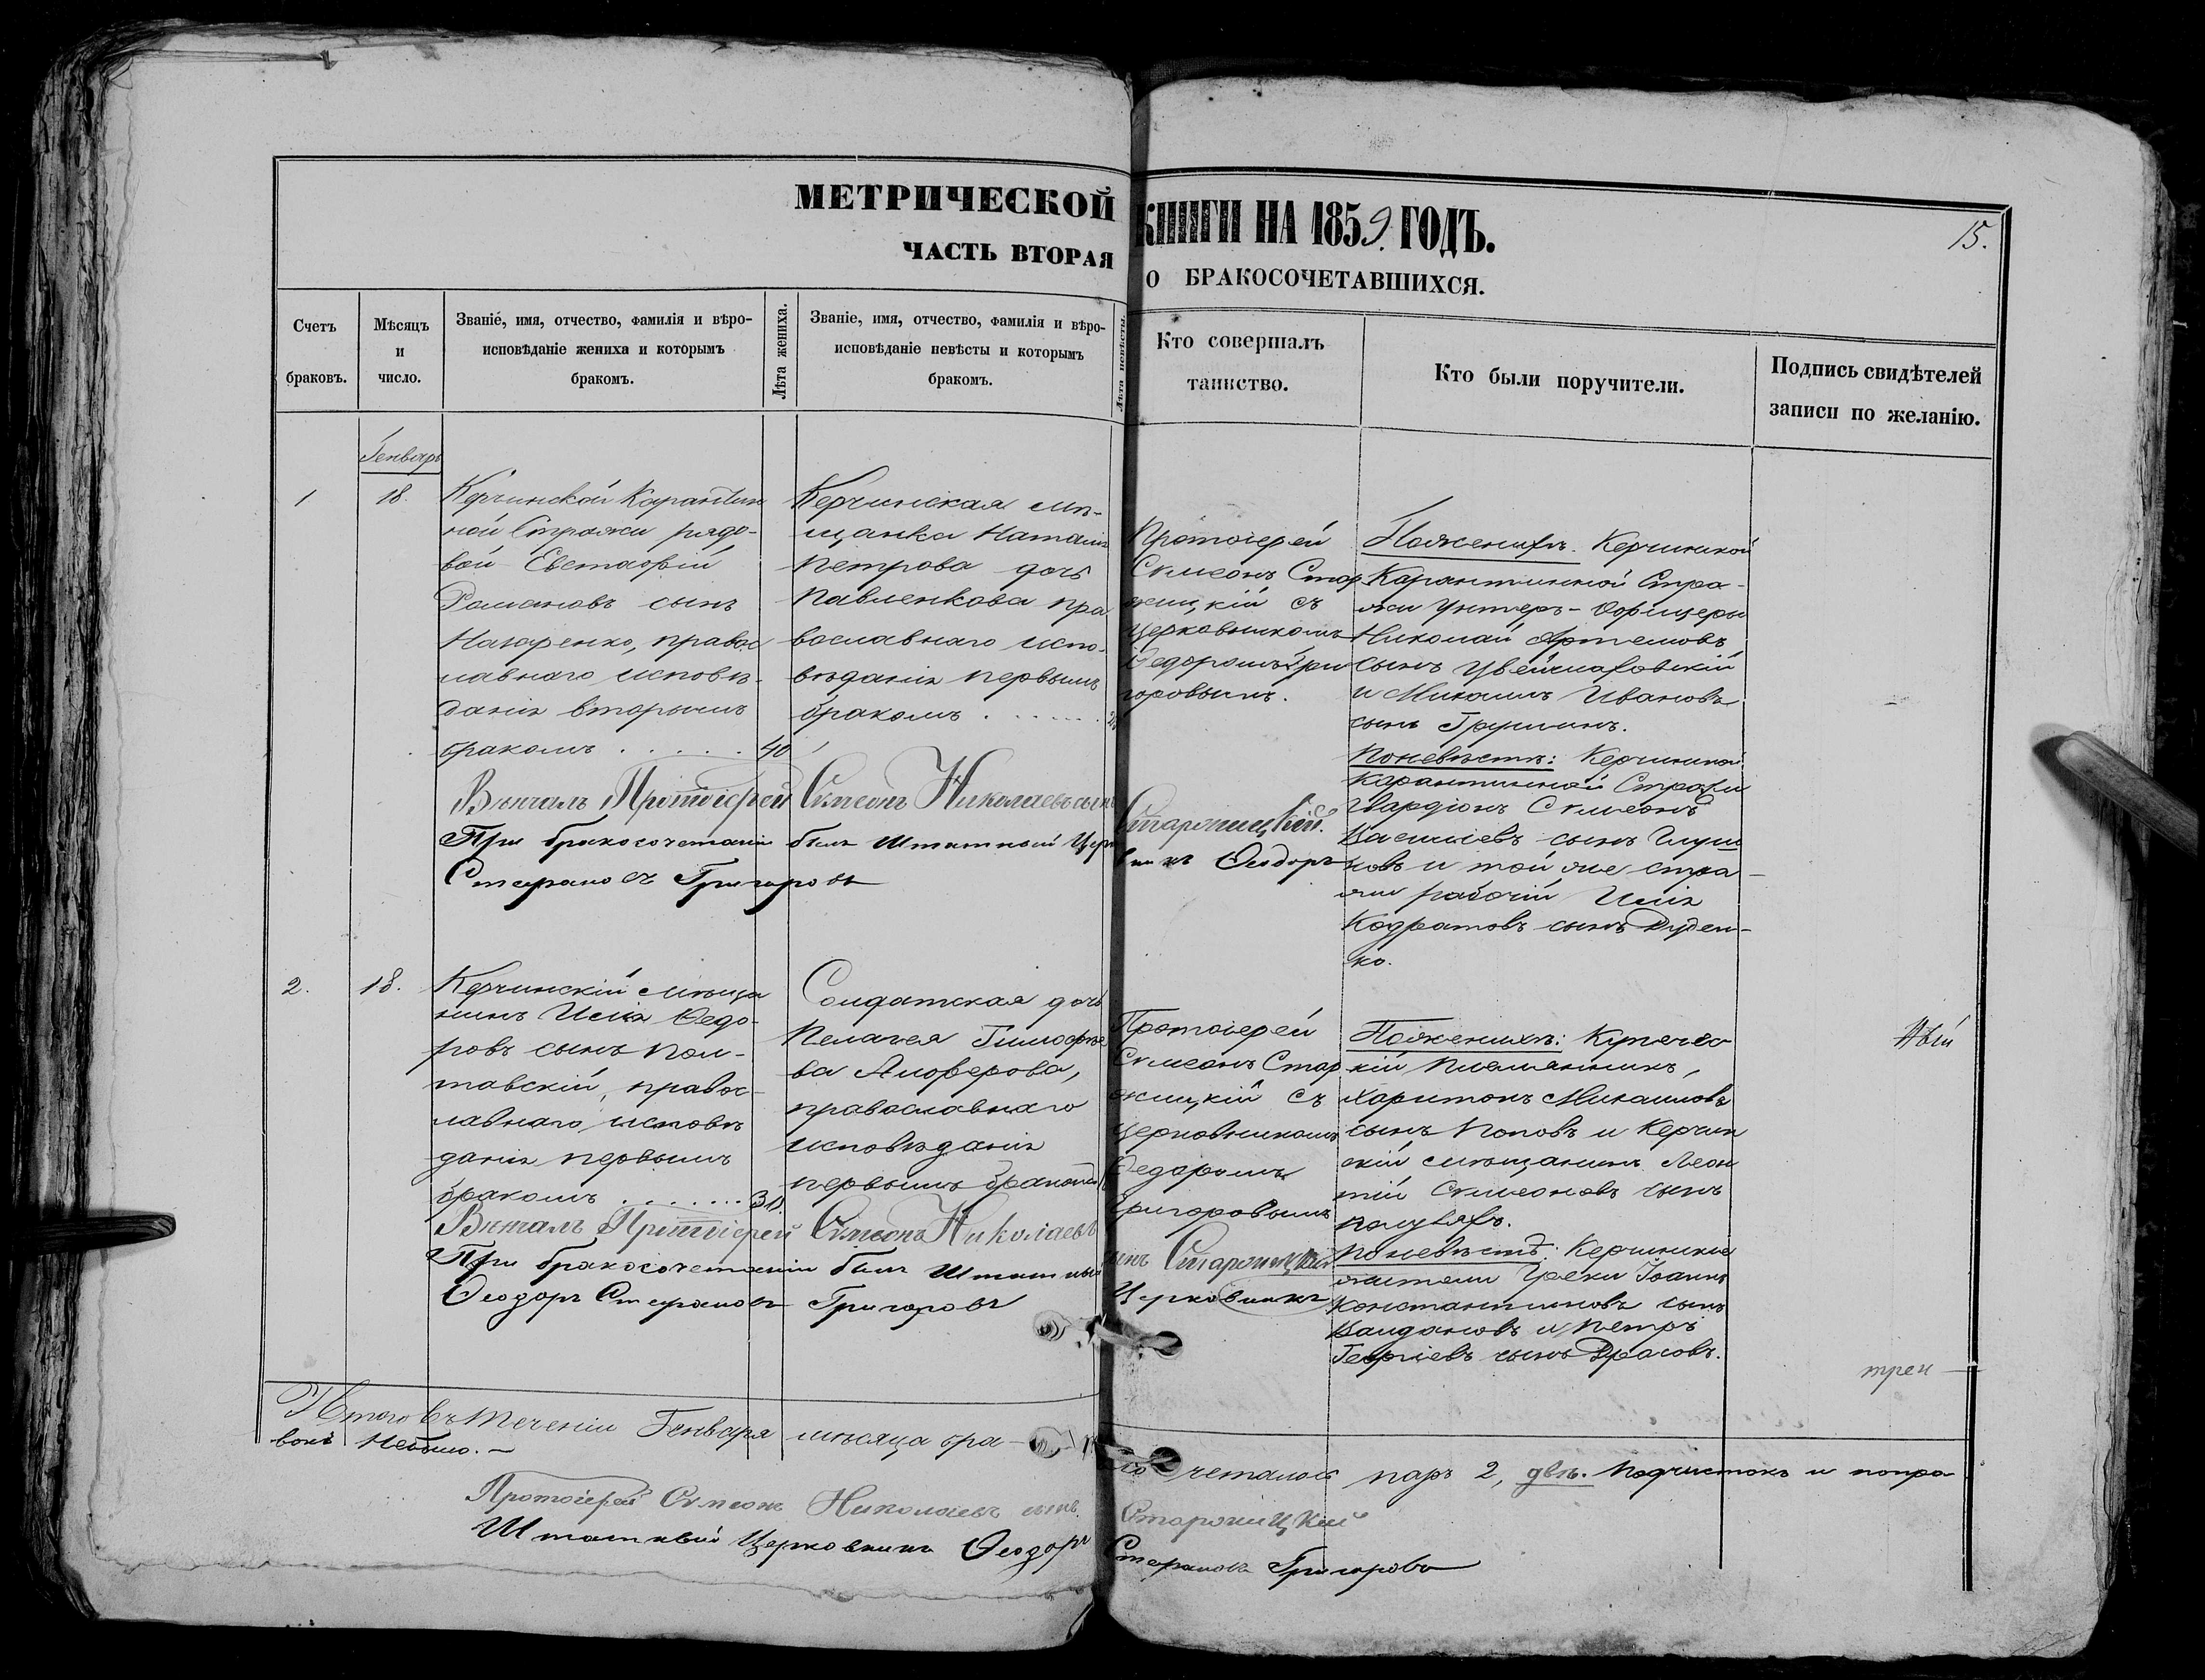 МЕТРИЧЕСКОЙ КНИГИ НА 1859 ГОДЪ.
15.
ЧАСТЬ ВТОРАЯ О БРАКОСОЧЕТАВШИХСЯ.
Счетъ
браковъ.
Мѣсяцъ
и
число.
Званіе, имя, отчество, фамилія и вѣро-
исповѣданіе жениха и которымъ
бракомъ.
Лѣта жениха.
Званіе, имя, отчество, фамилія и вѣро-
исповѣданіе невѣсты и которымъ
бракомъ.
Лѣта невѣсты.
Кто совершалъ
таинство.
Кто были поручители.
Подпись свидѣтелей
записи по желанію.
Генварь
1
18.
Керчинской Карантин
ной Стражи рядо-
вой Евстафій
Романовъ сынъ
Назаренко, правос
лавнаго исповѣ-
данія вторымъ
бракомъ . . . . . 40
Керчинская мѣ-
щанка Наталія
Петрова дочь
Павленкова пра
вославнаго испо-
вѣданія первымъ
бракомъ . . . . . .
Протоіерей
Симеонъ Стар
жицкій съ
церковникомъ
Федоромъ Гри
горовымъ.
По женихѣ. Керчинской
Карантинной Стра-
жи Унтеръ-Офицеры
Николай Артемовъ
сынъ
и Михаилъ Ивановъ
сынъ Грушинъ.
По невѣстѣ: Керчинской
Карантинной Стражи
Гвардіонъ Симеонъ
Васильевъ сынъ Глуш
ковъ и той же стра-
жи рабочій Илія
Кодратовъ сынъ Руден-
ко.
Вѣнчалъ Протоіерей Симеонъ Николаевъ сынъ Старожицкій.
При бракосочетаніи былъ Штатный Церковникъ Ѳеодоръ
Стефановъ Григоровъ
2.
18.
Керчинскій мѣща
нинъ Илія Федо-
ровъ сынъ Пол-
тавскій, правос-
лавнаго исповѣ
данія первымъ
бракомъ . . . . . . .
Солдатская дочь
Пелагея Тимофѣе
ва Алферова,
православнаго
исповѣданія
первымъ бракомъ
Протоіерей
Симеонъ Стар
жицкій съ
церковникомъ
Федоромъ
Григоровымъ
По женихѣ: Купечес
кій племянникъ,
Харитонъ Михаиловъ
сынъ Поповъ и Керчин
скій мѣщанинъ Леон
тій Симеоновъ сынъ
По невѣстѣ: Керчинскіе
жители Греки Іоаннъ
Константиновъ сынъ
и Петръ
Георгіевъ сынъ
Вѣнчалъ Протоіерей Симеонъ Николаевъ сынъ Старожицкій
При бракосочетаніи былъ Штатный Церковникъ
Ѳеодоръ Стефановъ Григоровъ
Итого въ теченіи Генваря мѣсяца бра-косочеталось паръ 2, двѣ. Подчистокъ и попра
вокъ небыло.
Протоіерей Симеонъ Николаевъ сынъ Старожицкій
Штатный Церковникъ Ѳеодоръ Стефановъ Григоровъ